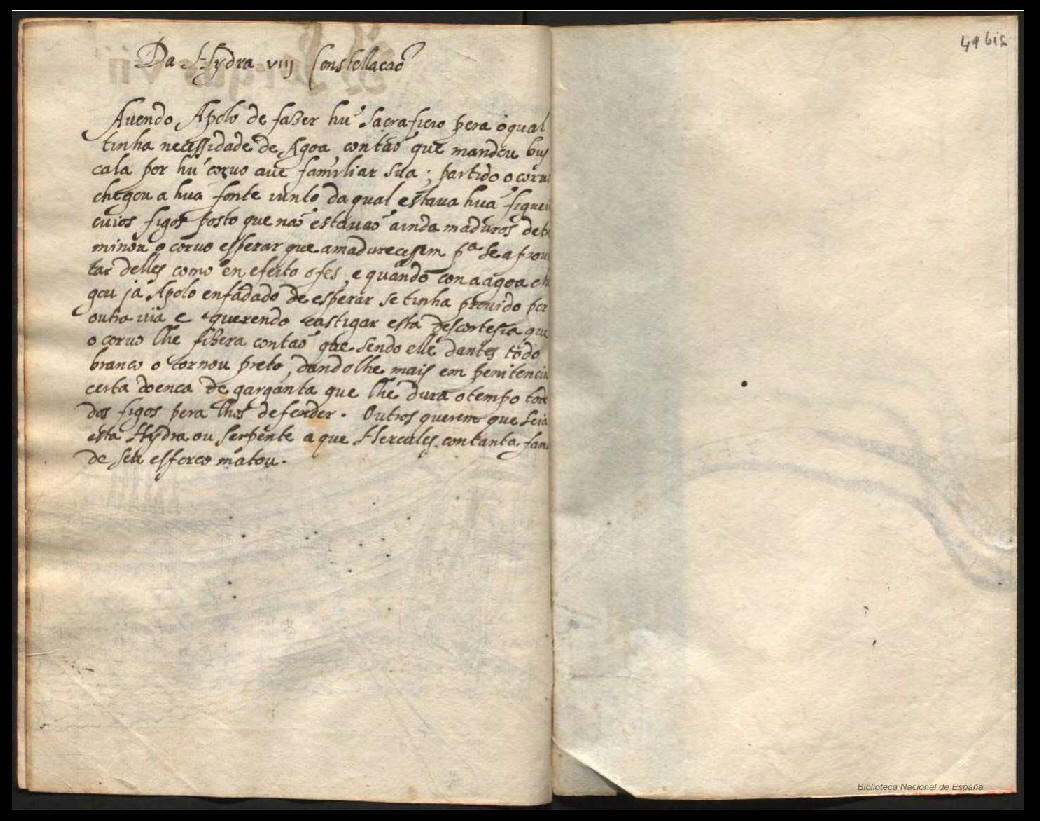 49 bis
Da Hydra viii Constellacaõ
Auendo Apolo de fazer hu᷉ sacraficio pera o qual
tinha necessidade de Agoa contaõ que mandou bus
cala por hu᷉ coruo aue familiar sua; partido o coruo
chegou a hua fonte iunto da qual estaua hua figuei
cuios figos posto que naõ estauaõ ainda maduros dete
minou o coruo esperar que amadurecessem pª se aprouei
tar delles como en efeito o fes, e quando con a agoa che
gou já Apolo enfadado de esperar se tinha prouido por
outra uia e querendo castigar esta descortesia que
o coruo lhe fizera contaõ que sendo elle dantes todo
branco o tornou preto, dandolhe mais em penitencia
certa doenca de garganta que lhe dura o tempo todo
dos figos pera lhos defender. Outros querem que seia
esta Hydra ou Serpente a que Hercules con tanta fama
de seu esforco matou.
Biblioteca Nacional de España